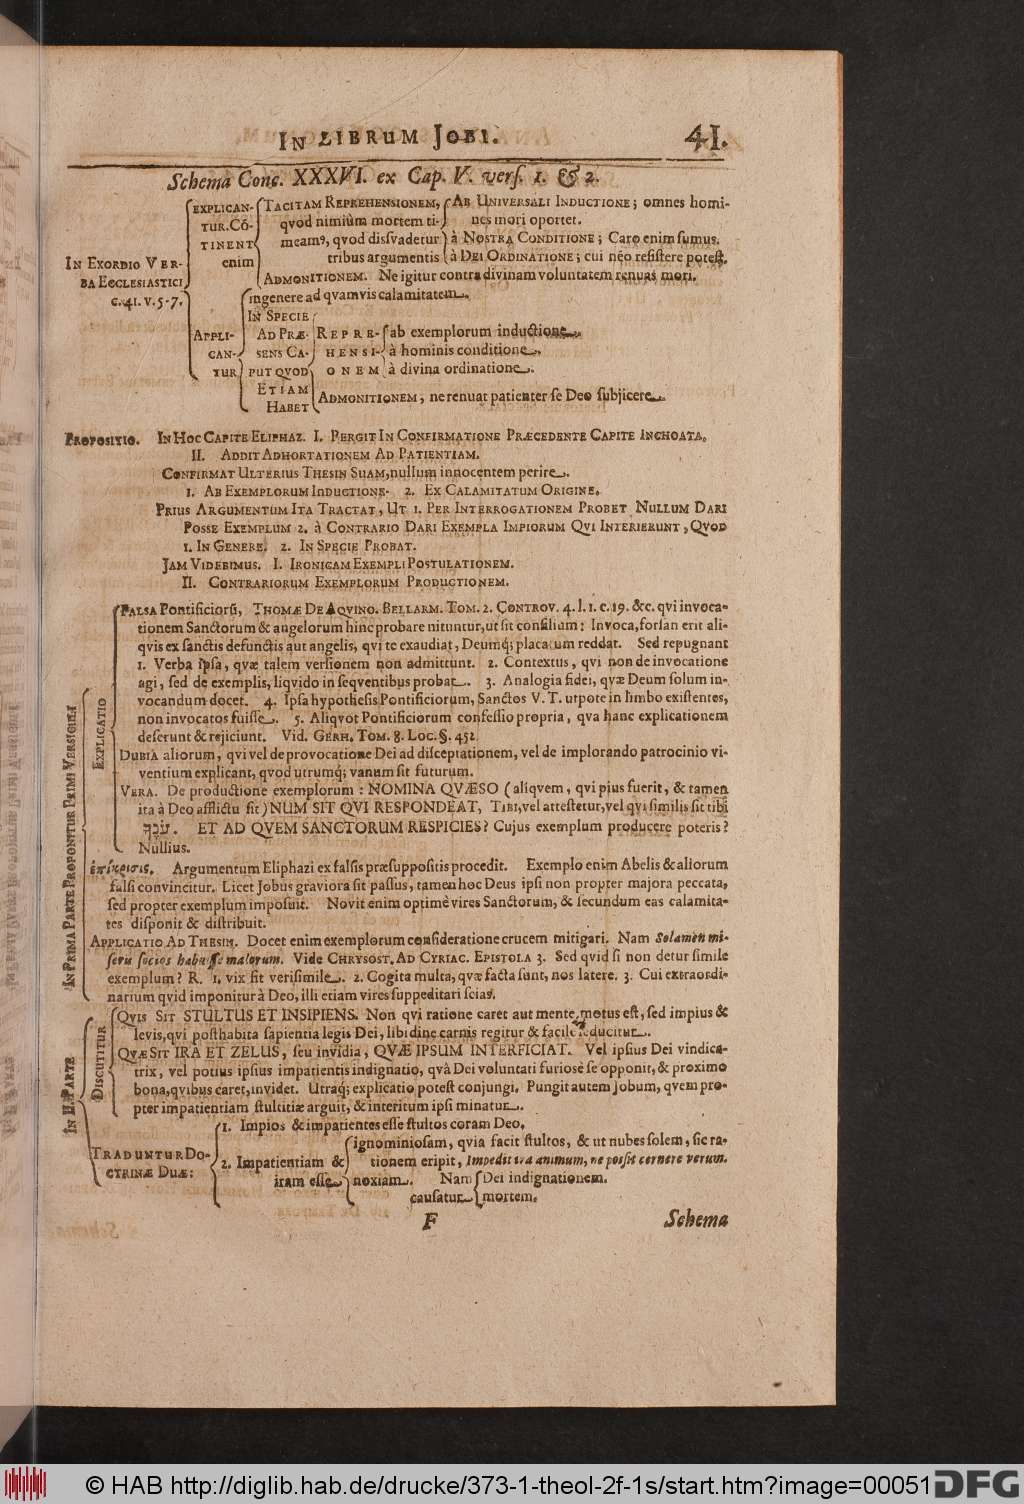 IN LIBRUM JOBI. 41.
Schema Conc. XXXVI. ex Cap. V. vers. 1. & 2.
IN EXORDIO VER-
BA ECCLESIASTICI
C. 41. V. 5-7.
EXPLICAN-
TUR. CÕ-
TINENT
enim
TACITAM REPREHENSIONEM,
qvod nimiùm mortem ti-
meamꝰ, qvod dissvadetur
tribus argumentis
AB UNIVERSALI INDUCTIONE; omnes homi-
nes mori oportet.
à NOSTRA CONDITIONE; Caro enim sumus.
à DEI ORDINATIONE; cui nẽo resistere potest.
ADMONITIONEM. Ne igitur contra divinam voluntatem renuas mori.
APPLI-
CAN-
TUR
ingenere ad qvamvis calamitatem.
IN SPECIE
AD PRÆ-
SENS CA-
PUT QVOD
ETIAM
HABET
REPRE-
HENSI-
ONEM
ab exemplorum inductione.
à hominis conditione.
à divina ordinatione.
ADMONITIONEM, ne renuat patienter se Deo subjicere.
PROPOSITIO. IN HOC CAPITE ELIPHAZ. I. PERGIT IN CONFIRMATIONE PRÆCEDENTE CAPITE INCHOATA.
II. ADDIT ADHORTATIONEM AD PATIENTIAM.
CONFIRMAT ULTERIUS THESIN SUAM, nullum innocentem perire.
1. AB EXEMPLORUM INDUCTIONE. 2. EX CALAMITATUM ORIGINE.
PRIUS ARGUMENTUM ITA TRACTAT, UT 1. PER INTERROGATIONEM PROBET NULLUM DARI
POSSE EXEMPLUM 2. à CONTRARIO DARI EXEMPLA IMPIORUM QVI INTERIERUNT, QVOD
1. IN GENERE. 2. IN SPECIE PROBAT.
JAM VIDEBIMUS. I. IRONICAM EXEMPLI POSTULATIONEM.
II. CONTRARIORUM EXEMPLORUM PRODUCTIONEM.
IN PRIMA PARTE PROPONITUR PRIMI VERSICULI
EXPLICATIO
FALSA Pontificiorũ, THOMÆ DE AQVINO. BELLARM. TOM. 2. CONTROV. 4. l. 1. c. 19. &c. qvi invoca-
tionem Sanctorum & angelorum hinc probare nituntur, ut sit consilium: Invoca, forsan erit ali-
qvis ex sanctis defunctis aut angelis, qvi te exaudiat, Deumq; placatum reddat. Sed repugnant
1. Verba ipsa, qvæ talem versionem non admittunt. 2. Contextus, qvi non de invocatione
agi, sed de exemplis, liqvido in seqventibus probat. 3. Analogia fidei, qvæ Deum solum in-
vocandum docet. 4. Ipsa hypothesis Pontificiorum, Sanctos V. T. utpote in limbo existentes,
non invocatos fuisse. 5. Aliqvot Pontificiorum confessio propria, qva hanc explicationem
deserunt & rejiciunt. Vid. GERH. TOM. 8. LOC. §. 452.
DUBIA aliorum, qvi vel de provocatione Dei ad disceptationem, vel de implorando patrocinio vi-
ventium explicant, qvod utrumq; vanum sit futurum.
VERA. De productione exemplorum: NOMINA QVÆSO (aliqvem, qvi pius fuerit, & tamen
ita à Deo afflictu sit) NUM SIT QVI RESPONDEAT, TIBI, vel attestetur, vel qvi similis sit tibi
ET AD QVEM SANCTORUM RESPICIES? Cujus exemplum producere poteris?
Nullius.
ἐπίκρισις. Argumentum Eliphazi ex falsis præsuppositis procedit. Exemplo enim Abelis & aliorum
falsi convincitur. Licet Jobus graviora sit passus, tamen hoc Deus ipsi non propter majora peccata,
sed propter exemplum imposuit. Novit enim optimè vires Sanctorum, & secundum eas calamita-
tes disponit & distribuit.
APPLICATIO AD THESIN. Docet enim exemplorum consideratione crucem mitigari. Nam Solamen mi-
seris socios habuisse malorum. Vide CHRYSOST. AD CYRIAC. EPISTOLA 3. Sed qvid si non detur simile
exemplum? R. 1. vix sit verisimile. 2. Cogita multa, qvæ facta sunt, nos latere. 3. Cui extraordi-
narium qvid imponitur à Deo, illi etiam vires suppeditari scias.
IN II. PARTE
DISCUTITUR
QVIS SIT STULTUS ET INSIPIENS. Non qvi ratione caret aut mente motus est, sed impius &
levis, qvi posthabita sapientia legis Dei, libidine carnis regitur & facile seducitur.
QVÆ SIT IRA ET ZELUS, seu invidia, QVÆ IPSUM INTERFICIAT. Vel ipsius Dei vindica-
trix, vel potius ipsius impatientis indignatio, qvâ Dei voluntati furiosè se opponit, & proximo
bona, qvibus caret, invidet. Utraq; explicatio potest conjungi. Pungit autem Jobum, qvem pro-
pter impatientiam stultitiæ arguit, & interitum ipsi minatur.
TRADUNTUR DO-
CTRINÆ DUÆ:
1. Impios & impatientes esse stultos coram Deo.
2. Impatientiam &
iram esse
ignominiosam, qvia facit stultos, & ut nubes solem, sic ra-
tionem eripit, Impedit ira animum, ne possit cernere verum.
noxiam. Nam
causatur
Dei indignationem.
mortem.
F Schema
© HAB http://diglib.hab.de/drucke/373-1-theol-2f-1s/start.htm?image=00051
DFG